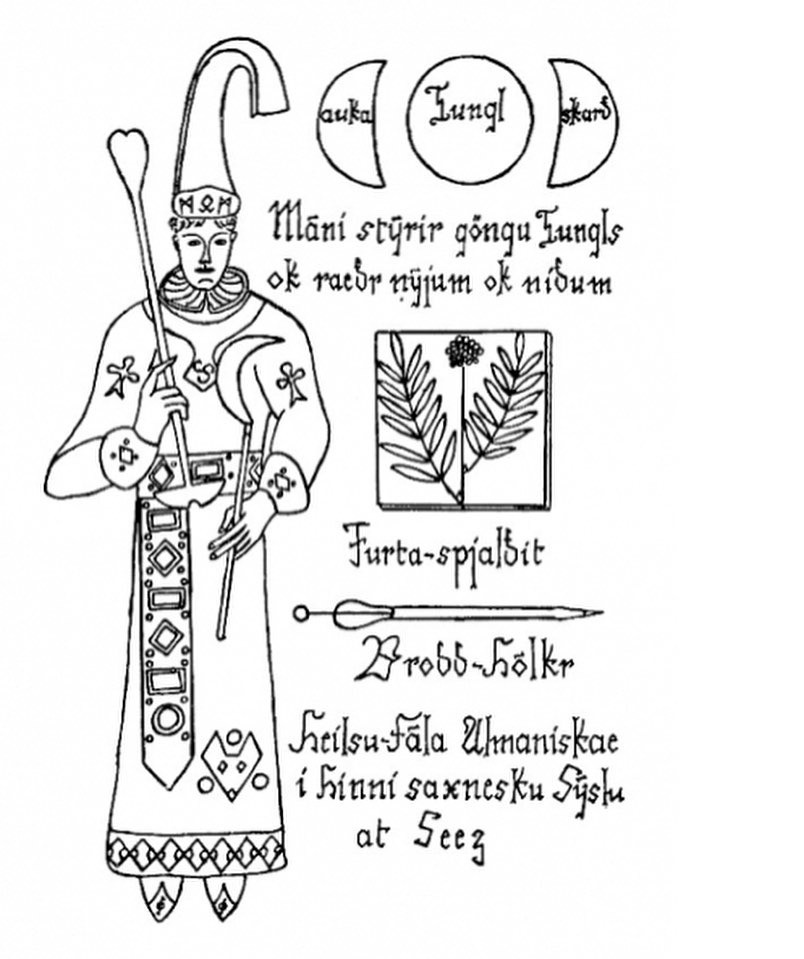 auka Tungl skarð
ᛗᛟᛗ
Māni stȳrir göngu Tungls
ok raeðr nȳjum ok niðum
Furta-spjalðit
Brodd-hōlkr
Heilsu-Fāla Almaniskae
i hinni saxnesku Sȳslu
at Seez